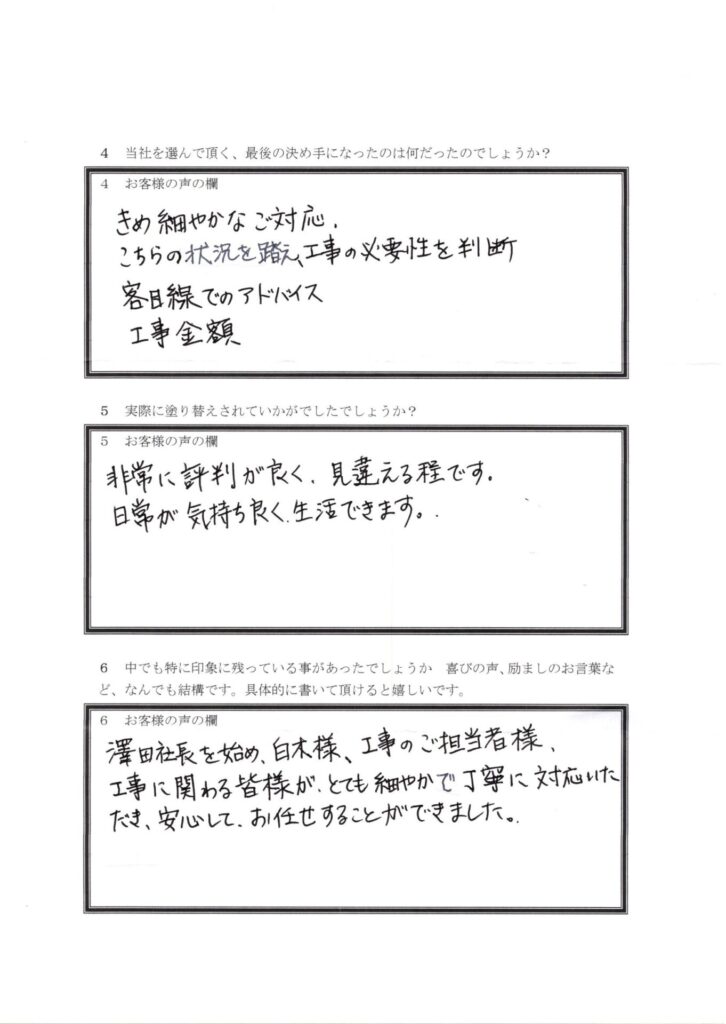 4 当社を選んで頂く、最後の決め手になったのは何だったのでしょうか？
4 お客様の声の欄
きめ細やかなご対応、
こちらの状況を踏え、工事の必要性を判断
客目線でのアドバイス
工事金額
5 実際に塗り替えされていかがでしたでしょうか？
5 お客様の声の欄
非常に評判が良く、見違える程です。
日常が気持ち良く、生活できます。
6 中でも特に印象に残っている事があったでしょうか 喜びの声、励ましのお言葉な
ど、なんでも結構です。具体的に書いて頂けると嬉しいです。
6 お客様の声の欄
澤田社長を始め、白木様、工事のご担当者様、
工事に関わる皆様が、とても細やかで丁寧に対応いた
だき、安心して、お任せすることができました。